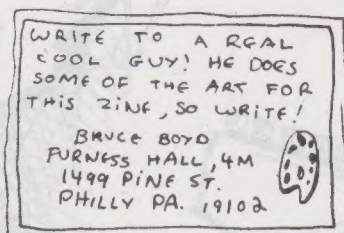 WRITE TO A REAL
COOL GUY! HE DOES
SOME OF THE ART FOR
THIS ZINE, SO WRITE!
BRUCE BOYD
FURNESS HALL, 4M
1499 PINE ST.
PHILLY PA. 19102